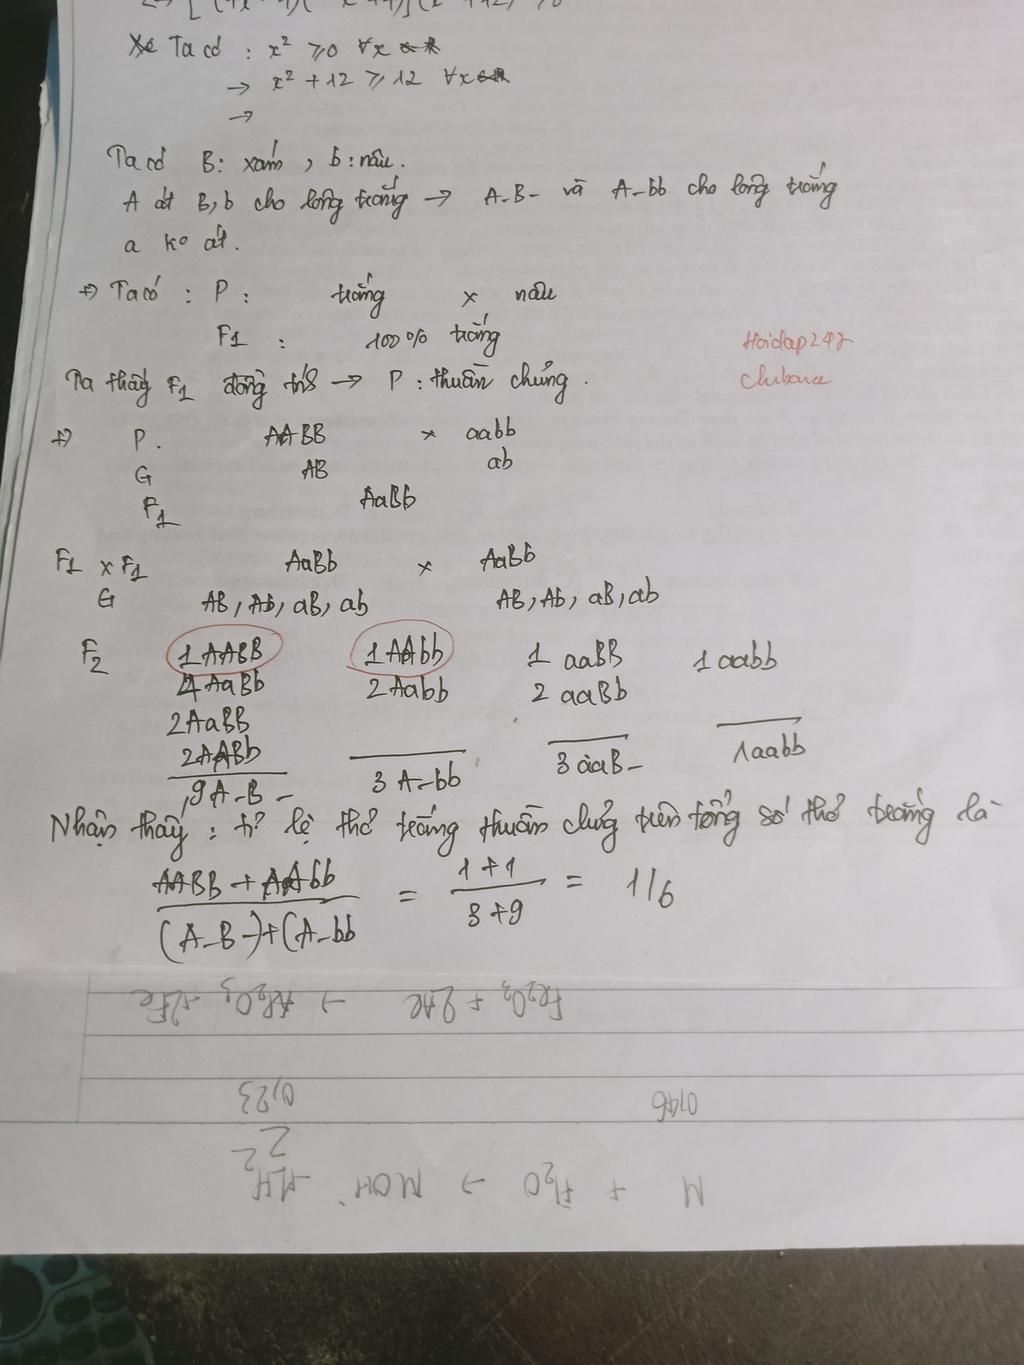 Ta có : x² ≥0 ∀x
→ x² +12 ≥12 ∀x
→
Ta có B: xám , b: nâu.
A át B,b cho lông trắng → A-B- và A-bb cho lông trắng
a ko át.
=> Ta có : P : trắng x nâu
F1 : 100% trắng
Hoidap247
Ta thấy F1 đồng tính → P : thuần chủng .
=> P. AABB x aabb
G AB ab
F1 AaBb
F1 x F1 AaBb x AaBb
G AB, Ab, aB, ab AB, Ab, aB, ab
F2 1AABB 1AAbb 1 aaBB 1aabb
4AaBb 2Aabb 2 aaBb
2AaBB
2AABb
9A-B- 3A-bb 3aaB- 1aabb
Nhận thấy : tỉ lệ thỏ trắng thuần chủng trên tổng số thỏ trắng là
AABB + AAbb / (A-B-)+(A-bb = 1+1 / 3+9 = 1/6
Fe2O3 + 2Al → Al2O3 + 2Fe
0,46 0,23
M + H2O → MOH H2